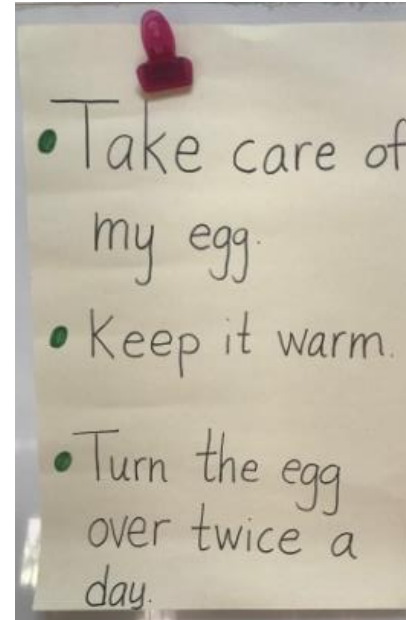 • Take care of
my egg.
• Keep it warm.
• Turn the egg
over twice a
day.